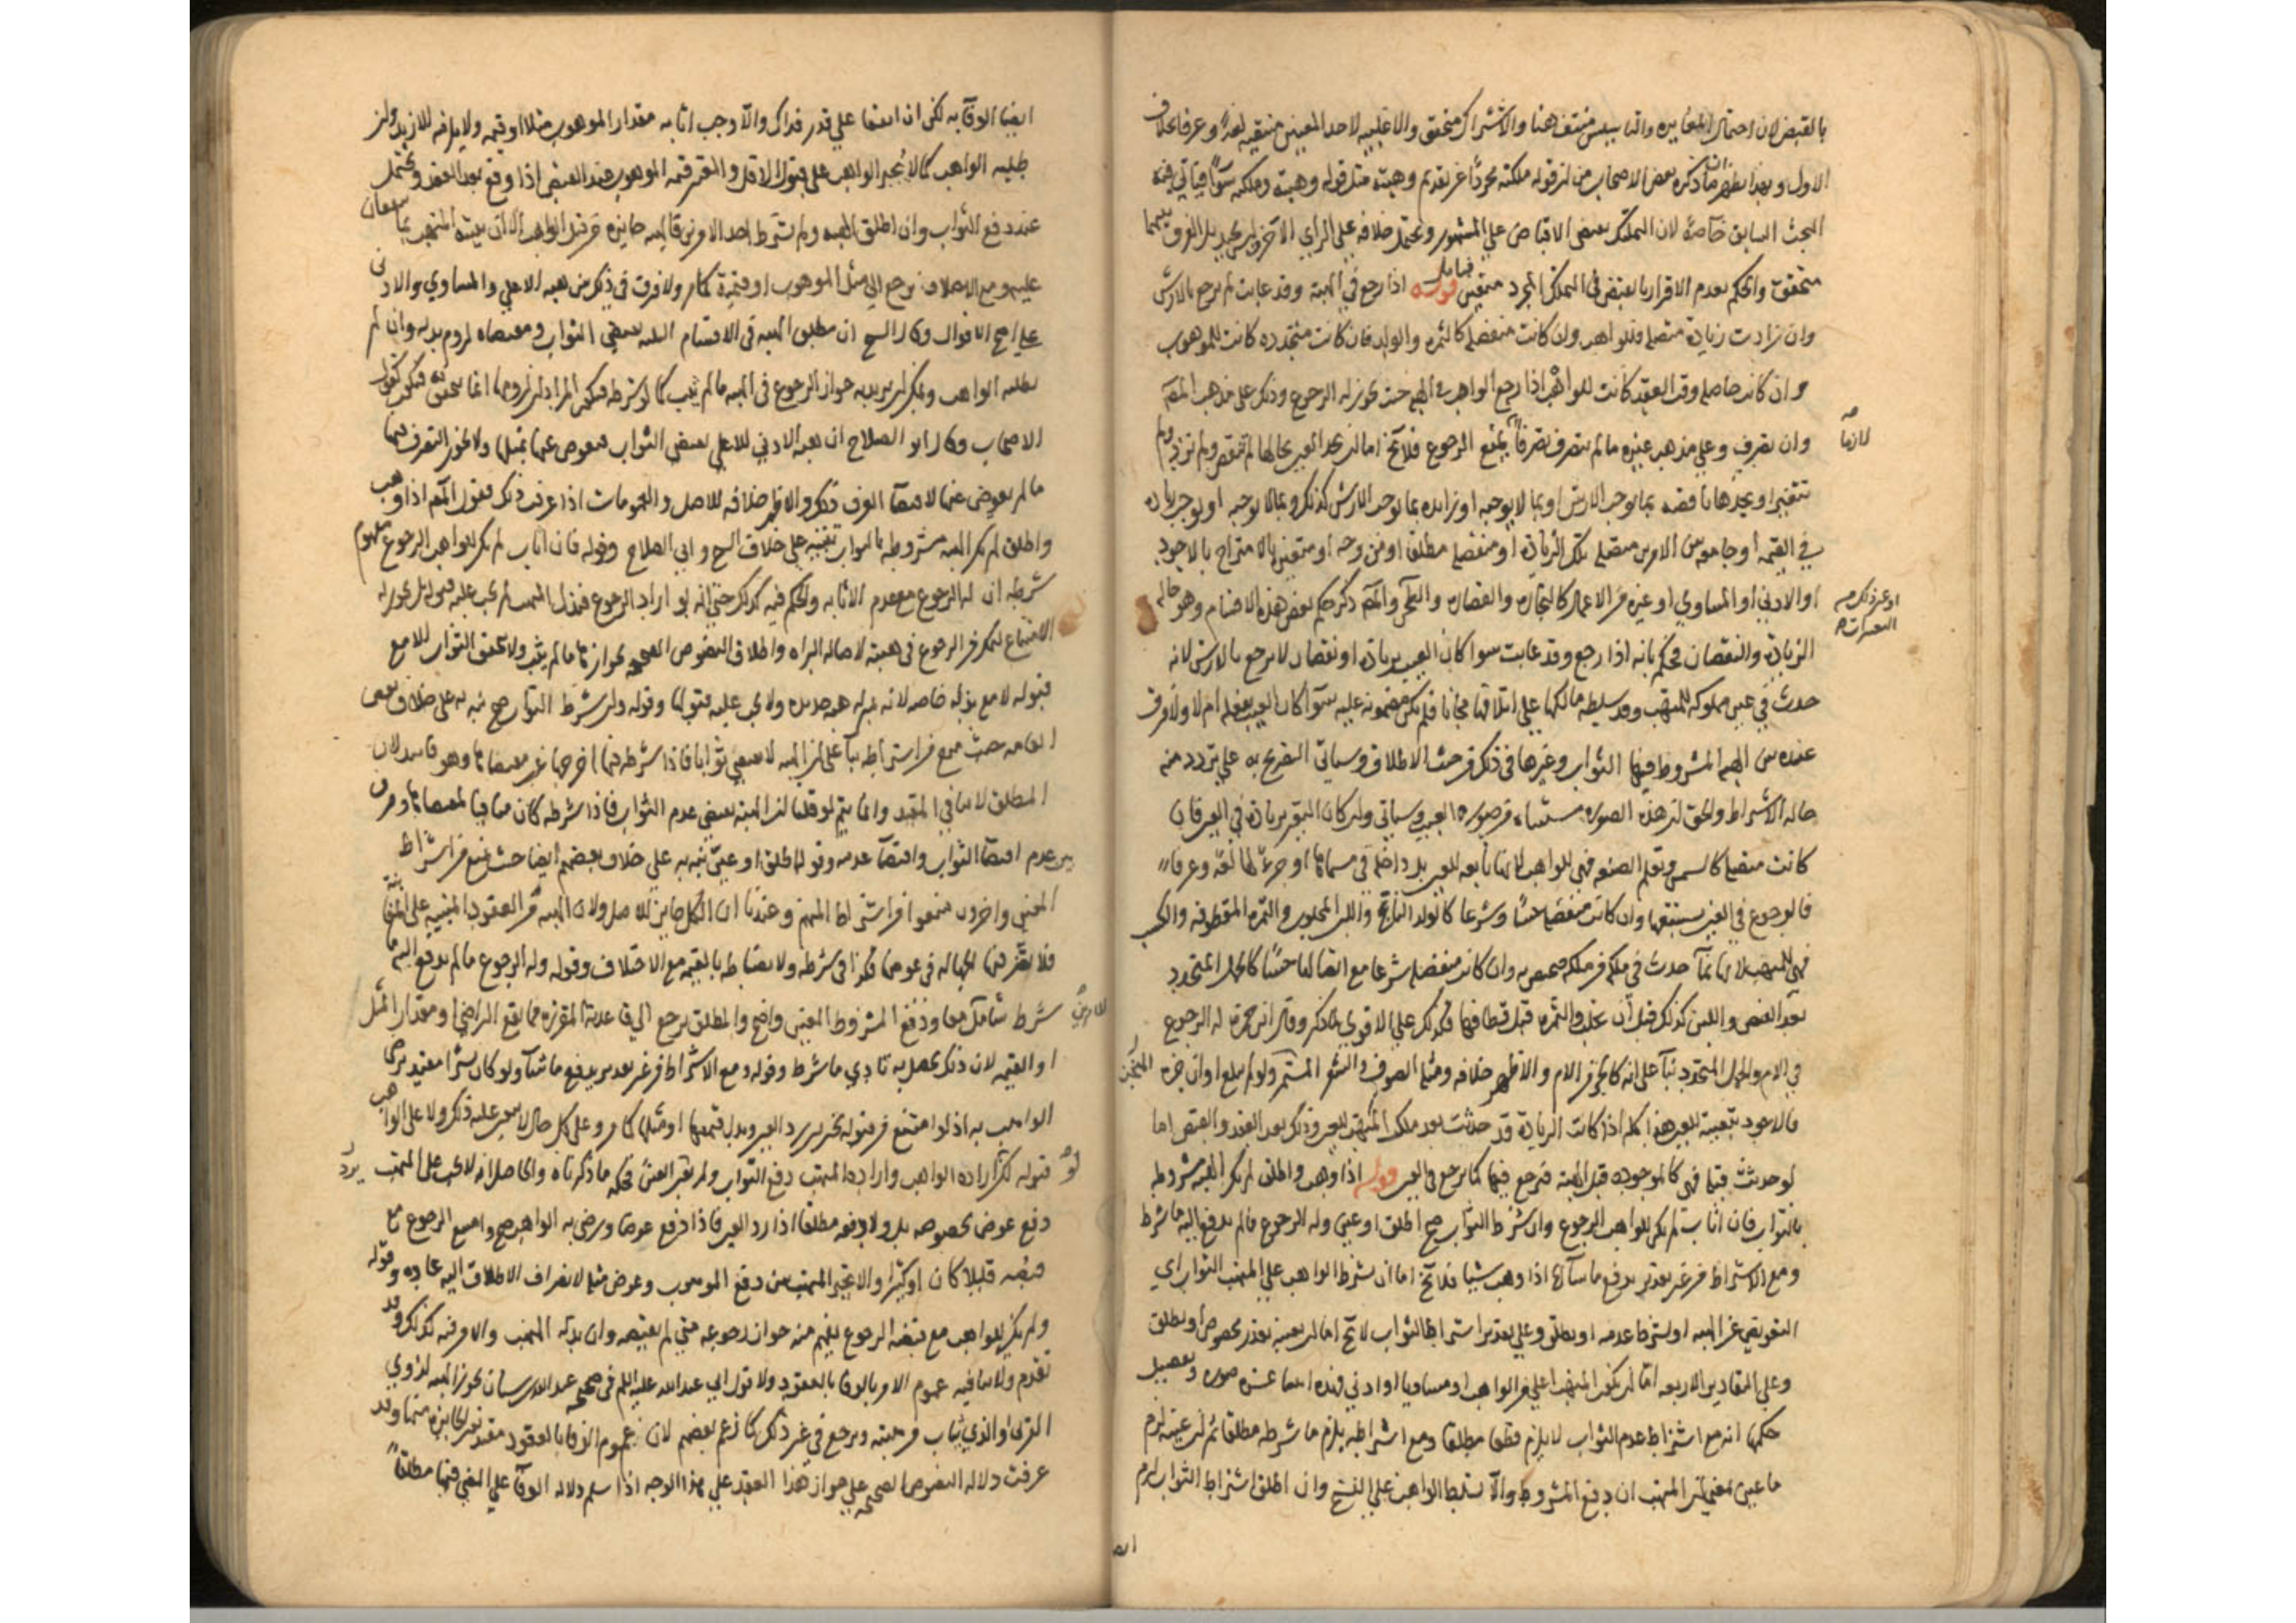 بالقبض لان احتمال المغايرة والتأسيس منتف هنا والاشتراك متحقق والاغلبية لاحد المعنيين منتفية لغة وعرفا بخلاف
الاول وبهذا يظهر ان ما ذكره بعض الاصحاب من ان قوله ملكته مجردا عن تقديم وهبته مثل قوله وهبته وملكته سواء فيأتي فيه
البحث السابق خاصة لان التملك يقتضي الاقباض على المشهور ويحتمل خلافه على الرأي الآخر ليس بجيد بل الفرق بينهما
متحقق والحكم بعدم الاقرار بالقبض في التملك المجرد متعين فتامل قوله اذا رجع في الهبة وقد عابت لم يرجع بالارش
وان زادت زيادة متصلة فللواهب وان كانت منفصلة كالثمرة والولد فان كانت متجددة كانت للموهوب
وان كانت حاصلة وقت العقد كانت للواهب اذا رجع الواهب في الهبة حيث يجوز له الرجوع وذلك على مذهب المصنف
وان تصرف وعلى مذهب غيره ما لم يتصرف تصرفا يمنع الرجوع فلا يخ اما ان يجد العين بحالها لم تنقص ولم تزد ولم
لازما
تتغير او يجدها ناقصة بما يوجب الارش او بما لا يوجبه او زايدة بما يوجب الارش كذلك وبما لا يوجبه او يوجب زيادة
في القيمة او جامعة بين الامرين متصلة تلك الزيادة او منفصلة مطلقا او من وجه او متغيرة بالامتزاج بالاجود
او الادنى او المساوي او غيره من الاعمال كالنجارة والقصارة والطحن والمصنف ذكر حكم بعض هذه الاقسام وهو حالة
او غير ذلك من التغييرات
الزيادة والنقصان فحكم بانه اذا رجع وقد عابت سوا كان العيب بزيادة او نقصان لا يرجع بالارش لانه
حدث في عين مملوكة للمتهب وقد سلطه مالكها على اتلافها مجانا فلم يكن مضمونة عليه سواء كان العيب بفعله ام لا ولا فرق
عنده بين الهبة المشروط فيها الثواب وغيرها في ذلك من حيث الاطلاق وسياتي التصريح به على تردد منه
حالة الاشتراط والحق ان هذه الصورة مستثناة من صورة العيب وسياتي وان كان التغير بزيادة في العين فان
كانت متصلة كالسمن وتعلم الصنعة فهي للواهب لانها تابعة للعين بل داخلة في مسماها او جزء لها لغة وعرفا
فالرجوع في العين يستتبعها وان كانت منفصلة حسا وشرعا كالولد الناتج واللبن المحلوب والثمرة المقطوفة والكسب
فهي للمتهب لانها نماء حدث في ملكه فملكه مختص به وان كانت منفصلة شرعا مع اتصالها حسا كالحمل المتجدد
بعد القبض واللبن كذلك قبل ان يحلب والثمرة قبل قطافها فكذلك على الاقوى لما ذكر وقال ابن حمزة له الرجوع
في الام والحمل المتجدد بناء على انه كالجزء من الام والاظهر خلافه ومثله الصوف والشعر المستجز ولو لم يبلغا اوان جزه
فالاجود تبعيته للعين هذا كله اذا كانت الزيادة قد حدثت بعد ملك المتهب للعين وذلك بعد العقد والقبض اما
لو حدثت قبلها فهي كالموجودة قبل الهبة فيرجع فيها كما يرجع في العين قوله اذا وهب واطلق لم يكن الهبة مشروطة
بالثواب فان اثاب لم يكن للواهب الرجوع وان شرط الثواب صح اطلق او عين وله الرجوع ما لم يدفع اليه ما شرط
ومع الاشتراط من غير تقدير يدفع ما شاء اذا وهب شيئا فلا يخ اما ان يشترط الواهب على المتهب الثواب اي
التعويض عن الهبة او يشترط عدمه او يطلق وعلى تقدير اشتراط الثواب لا يخ اما ان يعينه بقدر مخصوص او يطلق
وعلى التقادير الاربعة اما ان يكون المتهب اعلى من الواهب او مساويا او ادنى فهذه اثنتا عشرة صورة وتفصيل
حكمها انه مع اشتراط عدم الثواب لا يلزم قطعا مطلقا ومع اشتراطه يلزم ما شرطه مطلقا ثم ان عينه لزم
ما عين بمعنى ان المتهب ان دفع المشروط والا تسلط الواهب على الفسخ وان اطلق اشتراط الثواب لزم
ايضا الوفاء به لكن ان اتفقا على قدر فذاك والا وجب اثابه مقدار الموهوب مثلا او قيمة ولا يلزمه الازيد وان
طلبه الواهب كما لا يجبر الواهب على قبول الاقل والمعتبر قيمة الموهوب عند القبض اذا وقع بعد العقد ويحتمل
عند دفع الثواب وان اطلق الهبة ولم يشترط احد الامرين فالهبة جايزة من قبل الواهب الا ان يثيبه المتهب بما يتفقان
عليه ومع الاختلاف يرجع الى مثل الموهوب او قيمته كما مر ولا فرق في ذلك بين هبة الاعلى والمساوي والادنى
على اصح الاقوال وقال الشيخ ان مطلق الهبة في الاقسام الثلثة يقتضي الثواب ومقتضاه لزوم بذله وان لم
يطلبه الواهب ويمكن ان يريد به جواز الرجوع في الهبة ما لم يثب كما لو شرطه فيكون المراد ان لزومها انما يتحقق به فيكون كقول
الاصحاب وقال ابو الصلاح ان هبة الادنى للاعلى يقتضي الثواب فيعوض عنها بمثلها ولا يجوز التصرف فيها
ما لم يعوض عنها لاقتضاء العرف ذلك والاظهر خلافه للاصل والعمومات اذا عرفت ذلك فقول المصنف اذا وهب
واطلق لم يكن الهبة مشروطة بالثواب تنبيه على خلاف الشيخ وابي الصلاح وقوله فان اثاب لم يكن للواهب الرجوع مفهوم
شرطه ان له الرجوع مع عدم الاثابة والحكم فيه كذلك حتى انه لو اراد الرجوع فبذل المتهب لم يجب عليه قبوله بل يجوز له
الامتناع ليتمكن من الرجوع في هبته لاصالة البراءة واطلاق النصوص الصحيحة بجوازها ما لم يثب ولا يتحقق الثواب الا مع
قبوله لا مع بذله خاصة لانه بمنزلة هبة جديدة ولا يجب عليه قبولها وقوله وان شرط الثواب صح نبه به على خلاف بعض
العامة حيث منع من اشتراطه بناء على ان الهبة لا تقتضي ثوابا فاذا شرطه فيها اخرجها عن مقتضاها وهو فاسد لان
المطلق لا ينافي المقيد وانما يتم لو قلنا ان الهبة يقتضي عدم الثواب فاذا شرطه كان منافيا لمقتضاها وفرق
بين عدم اقتضاء الثواب واقتضاء عدمه وقوله اطلق او عين تنبيه على خلاف بعضهم ايضا حيث منع من اشتراط
المعين واخرون منعوا من اشتراط المبهم وعندنا ان الكل جايز للاصل ولان الهبة من العقود المبنية على المغابنة
فلا يضر فيها الجهالة في عوضها فكذا في شرطه ولانضباطه بالقيمة مع الاختلاف وقوله وله الرجوع ما لم يدفع اليه ما
شرط شامل لهما ودفع المشروط المعين واضح والمطلق يرجع الى قاعدته المقررة مما يقع التراضي او مقدار المثل
او القيمة لان ذلك يحصل به تادي ما شرط وقوله ومع الاشتراط من غير تقدير يدفع ما شاء ولو كان يسيرا مقيد برضى
الواهب به اذ لو امتنع من قبوله تخير بين رد العين وبذل قيمتها او مثلها كما مر وعلى كل حال لا يجبر عليه ذلك ولا على الواهب
قبوله لكن لو اراده الواهب واراد المتهب دفع الثواب ولم يقبر العين فحكمه ما ذكرناه والحاصل انه لا يجب على المتهب
دفع عوض بخصوصه بل ولا دفعه مطلقا اذا رد العين فاذا دفع عوضا ورضي به الواهب صح وامتنع الرجوع مع
قبضه قليلا كان او كثيرا والا تخير المتهب بين دفع الموهوب وعوض مثلها لانصراف الاطلاق اليه عادة وقوله
ولم يكن للواهب مع قبضه الرجوع يفهم منه جواز رجوعه متى لم يقبضه وان بذله المتهب والامر فيه كذلك وقد
تقدم ولا ينافيه عموم الامر بالوفاء بالعقود ولا قول ابي عبدالله عليه السلم في صحيحة عبدالله بن سنان تجوز الهبة لذوي
القربى والذي يثاب من هبته ويرجع في غير ذلك كما زعم بعضهم لان عموم الوفاء بالعقود مقيد بغير الجايزة منها وقد
عرفت دلالة النصوص الصحيحة على جواز هذا العقد على هذا الوجه اذا سلم دلالة الوفاء على المضي فيها مطلقا